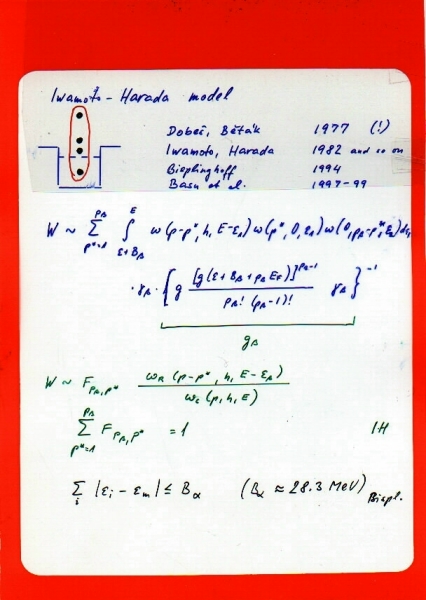 Iwamoto - Harada model
Dobeš, Běták 1977 (!)
Iwamoto, Harada 1982 and so on
Bieplinghoff 1994
Basu et al. 1997-99
W ~ Σ_{p*=1}^{p_β} ∫_{ε+B_β}^{E} ω(p-p*, h, E-ε_1) ω(p*, 0, ε_1) ω(0, p_β-p*, ε_2) dε_1
· γ_β · { g [g(ε + B_β + p_β E_F)]^{p_β-1} / p_β! (p_β-1)! γ_β }^{-1}
g_β
W ~ F_{p_β,p*} ω_R (p-p*, h, E-ε_β) / ω_c (p, h, E)
Σ_{p*=1}^{p_β} F_{p_β,p*} = 1 IH
Σ_i |ε_i - ε_m| ≤ B_α (B_α ≈ 28.3 MeV) Biepl.